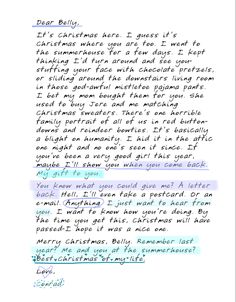 Dear Belly,
It's Christmas here. I guess it's
Christmas where you are too. I went to
the summerhouse for a few days. I kept
thinking I'd turn around and see your
stuffing your face with chocolate pretzels,
or sliding around the downstairs living room
in those god-awful mistletoe pajama pants.
I bet my mom bought them for you. She
used to buy Jere and me matching
Christmas sweaters. There's one horrible
family portrait of all of us in red button-
downs and reindeer bowties. It's basically
a blight on humanity. I hid it in the attic
one night and no one's seen it since. If
you've been a very good girl this year,
maybe I'll show you when you come back.
My gift to you.
You know what you could give me? A letter
back. Hell, I'll even take a postcard. Or an
e-mail. Anything. I just want to hear from
you. I want to know how you're doing. By
the time you get this, Christmas will have
passed-I hope it was a nice one.
Merry Christmas, Belly. Remember last
year? Me and you at the summerhouse?
Best Christmas of my life.
Love,
Conrad